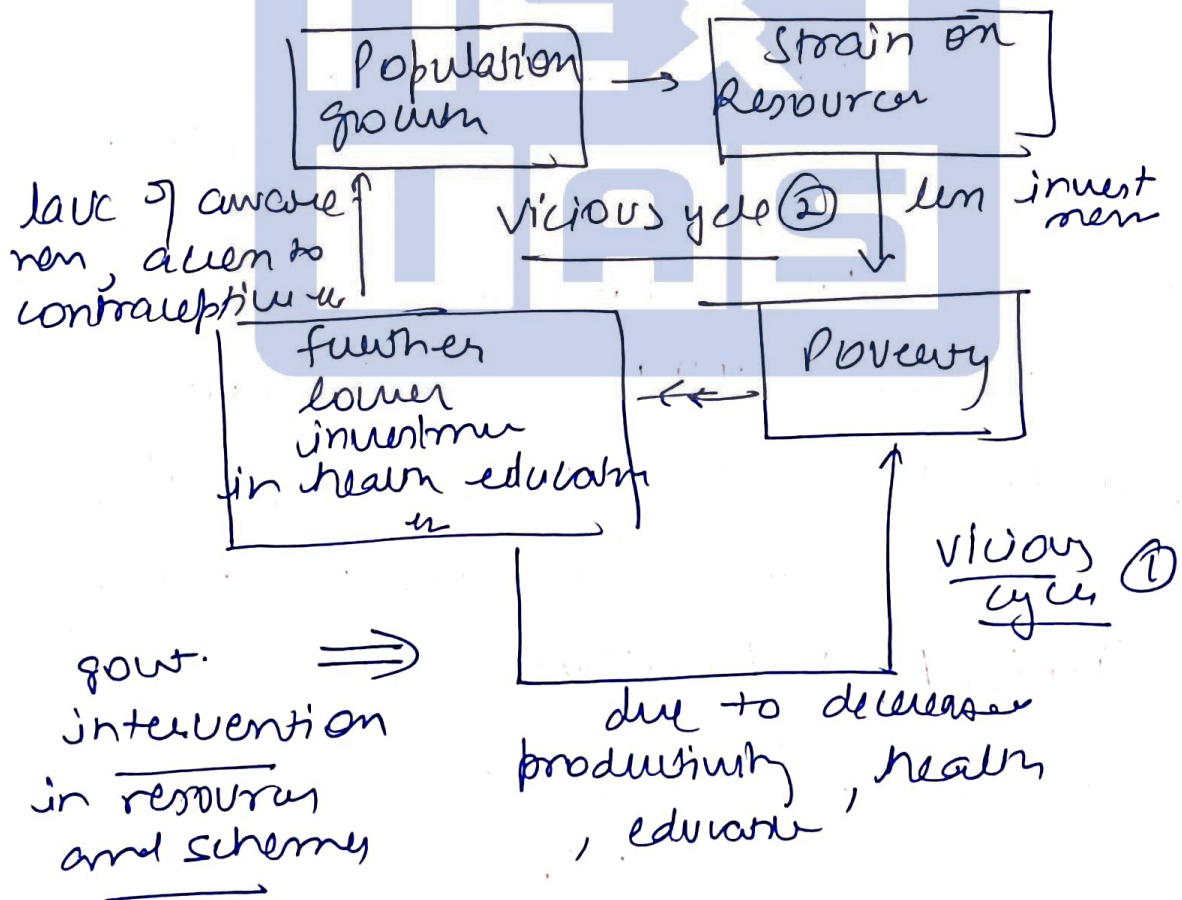 NEXT
IAS
Population
growth
Strain on
Resources
lack of aware
ness, access to
contraceptive etc
Vicious cycle ②
less invest
ment
further
lower
investment
in health education
etc
Poverty
Vicious
cycle ①
govt.
intervention
in resources
and schemes
due to decrease
productivity, health
, education